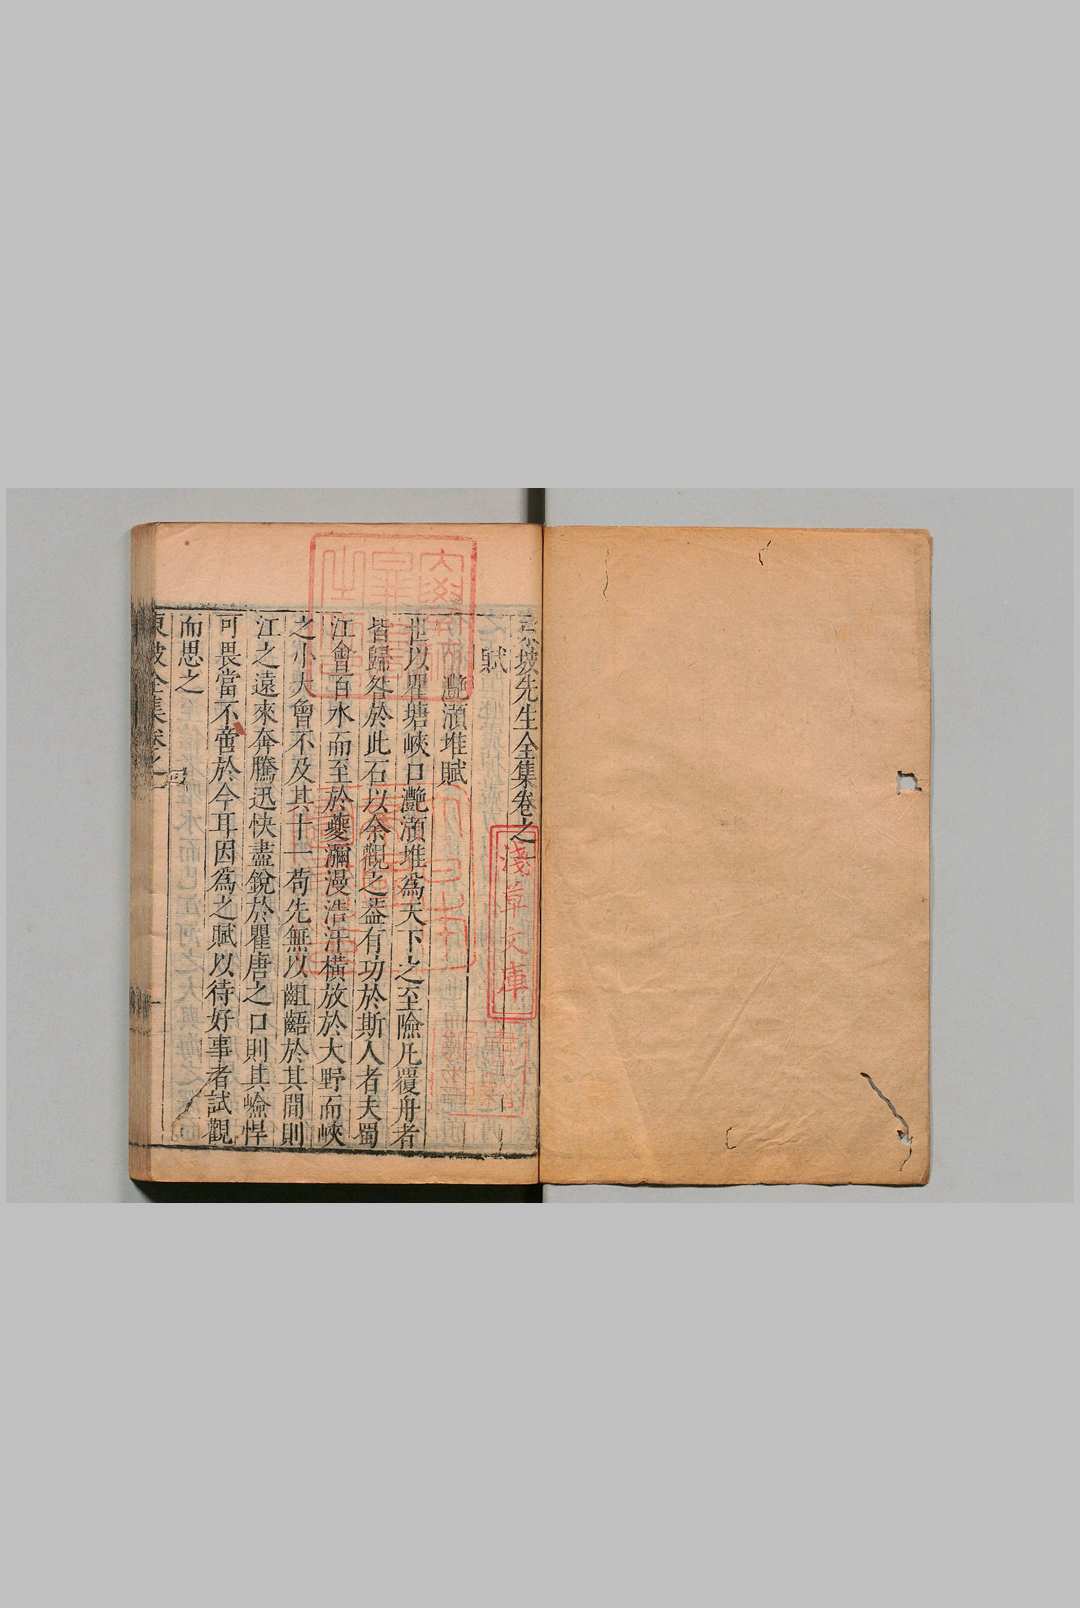 東坡先生全集卷之一
賦
灩澦堆賦
世以瞿塘峽口灩澦堆爲天下之至險凡覆舟者
皆歸咎於此石以余觀之蓋有功於斯人者夫蜀
江會百水而至於夔瀰漫浩汗橫放於大野而峽
之小大曾不及其十一苟先無以齟齬於其間則
江之遠來奔騰迅快盡銳於瞿唐之口則其嶮悍
可畏當不啻於今耳因爲之賦以待好事者試觀
而思之
東坡全集卷之一
淺草文庫